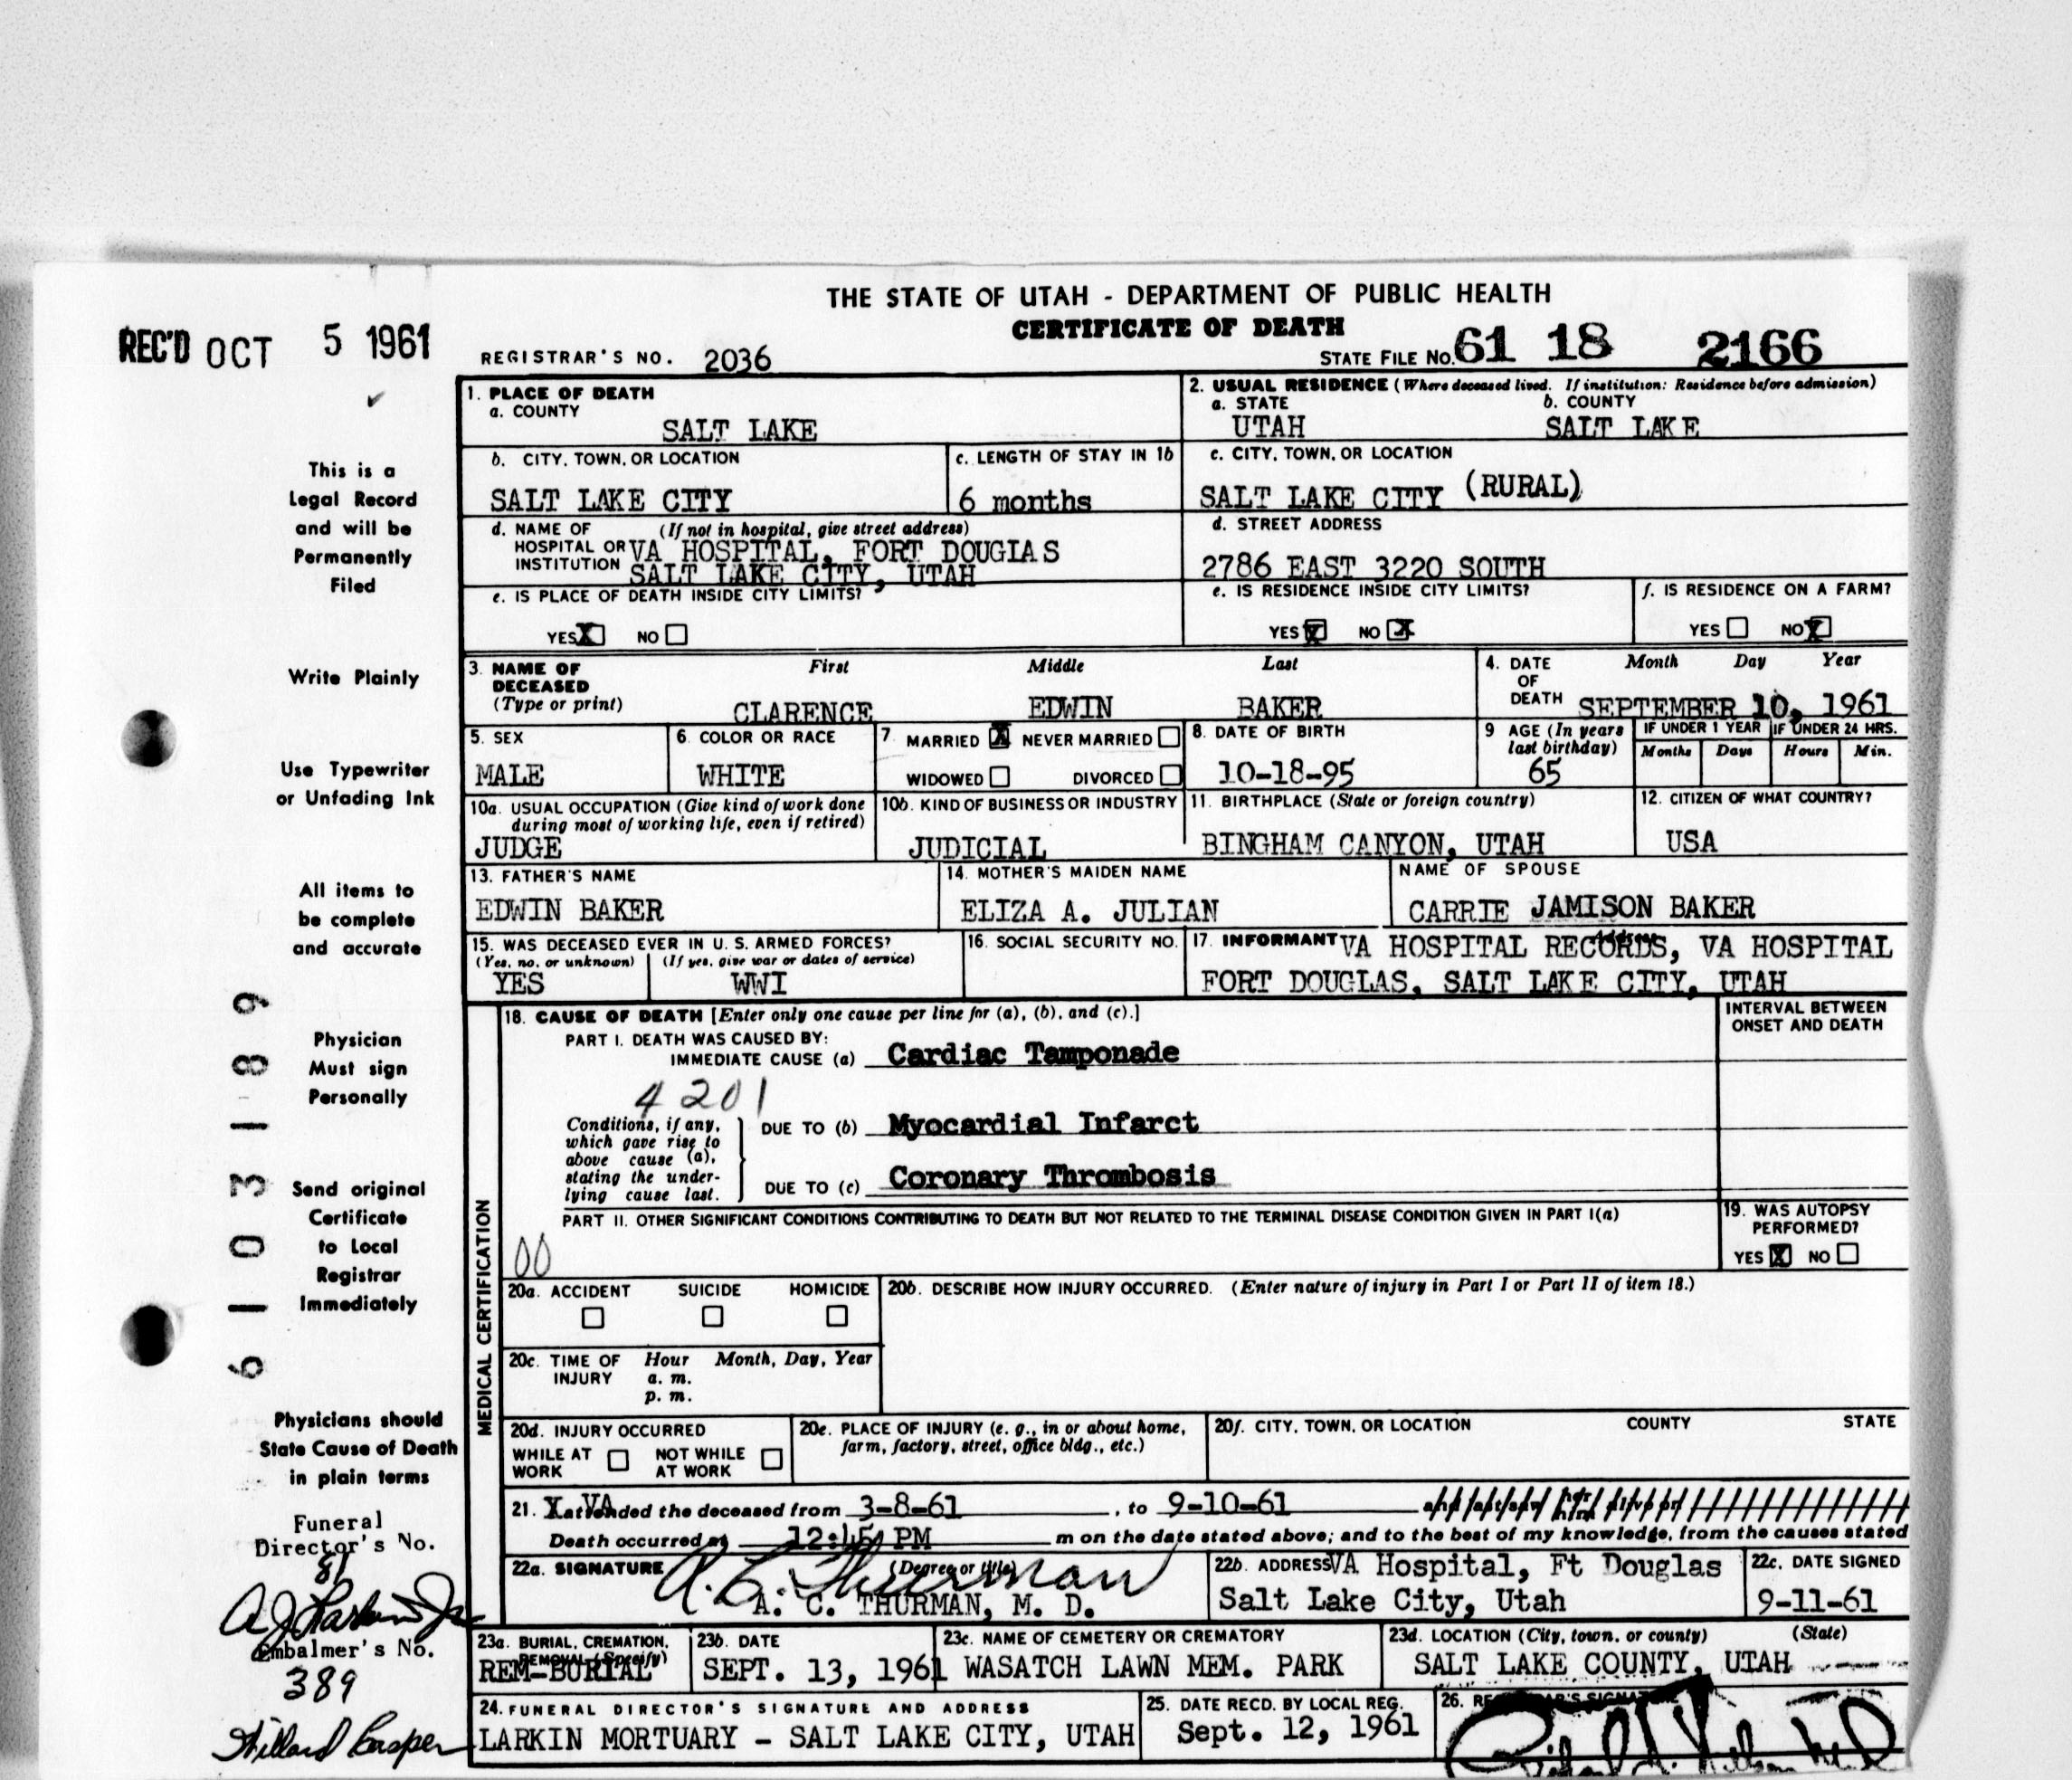 THE STATE OF UTAH - DEPARTMENT OF PUBLIC HEALTH
CERTIFICATE OF DEATH
REC'D OCT 5 1961
REGISTRAR'S NO. 2036
STATE FILE NO. 61 18 2166
1. PLACE OF DEATH
a. COUNTY
SALT LAKE
2. USUAL RESIDENCE (Where deceased lived. If institution: Residence before admission)
a. STATE b. COUNTY
UTAH SALT LAKE
b. CITY, TOWN, OR LOCATION
SALT LAKE CITY
c. LENGTH OF STAY IN 1b
6 months
c. CITY, TOWN, OR LOCATION
SALT LAKE CITY (RURAL)
d. NAME OF (If not in hospital, give street address)
HOSPITAL OR VA HOSPITAL, FORT DOUGLAS
INSTITUTION SALT LAKE CITY, UTAH
d. STREET ADDRESS
2786 EAST 3220 SOUTH
e. IS PLACE OF DEATH INSIDE CITY LIMITS?
YES X NO
e. IS RESIDENCE INSIDE CITY LIMITS?
YES X NO X
f. IS RESIDENCE ON A FARM?
YES NO X
3. NAME OF DECEASED (Type or print)
First Middle Last
CLARENCE EDWIN BAKER
4. DATE OF DEATH
Month Day Year
SEPTEMBER 10, 1961
5. SEX
MALE
6. COLOR OR RACE
WHITE
7 MARRIED X NEVER MARRIED
WIDOWED DIVORCED
8. DATE OF BIRTH
10-18-95
9 AGE (In years last birthday)
65
IF UNDER 1 YEAR IF UNDER 24 HRS.
Months Days Hours Min.
10a. USUAL OCCUPATION (Give kind of work done during most of working life, even if retired)
JUDGE
10b. KIND OF BUSINESS OR INDUSTRY
JUDICIAL
11. BIRTHPLACE (State or foreign country)
BINGHAM CANYON, UTAH
12. CITIZEN OF WHAT COUNTRY?
USA
13. FATHER'S NAME
EDWIN BAKER
14. MOTHER'S MAIDEN NAME
ELIZA A. JULIAN
NAME OF SPOUSE
CARRIE JAMISON BAKER
15. WAS DECEASED EVER IN U. S. ARMED FORCES?
(Yes, no, or unknown) (If yes, give war or dates of service)
YES WWI
16. SOCIAL SECURITY NO.
17. INFORMANT Address
VA HOSPITAL RECORDS, VA HOSPITAL
FORT DOUGLAS, SALT LAKE CITY, UTAH
MEDICAL CERTIFICATION
18. CAUSE OF DEATH [Enter only one cause per line for (a), (b), and (c).]
INTERVAL BETWEEN ONSET AND DEATH
PART I. DEATH WAS CAUSED BY:
IMMEDIATE CAUSE (a) Cardiac Tamponade
4201
Conditions, if any, which gave rise to above cause (a), stating the underlying cause last.
DUE TO (b) Myocardial Infarct
DUE TO (c) Coronary Thrombosis
PART II. OTHER SIGNIFICANT CONDITIONS CONTRIBUTING TO DEATH BUT NOT RELATED TO THE TERMINAL DISEASE CONDITION GIVEN IN PART I(a)
00
19. WAS AUTOPSY PERFORMED?
YES X NO
20a. ACCIDENT SUICIDE HOMICIDE
20b. DESCRIBE HOW INJURY OCCURRED. (Enter nature of injury in Part I or Part II of item 18.)
20c. TIME OF INJURY Hour Month, Day, Year
a. m.
p. m.
20d. INJURY OCCURRED
WHILE AT WORK NOT WHILE AT WORK
20e. PLACE OF INJURY (e. g., in or about home, farm, factory, street, office bldg., etc.)
20f. CITY, TOWN, OR LOCATION COUNTY STATE
21. X VA attended the deceased from 3-8-61, to 9-10-61 and last saw her him alive on
Death occurred at 12:45 PM m on the date stated above; and to the best of my knowledge, from the causes stated
22a. SIGNATURE (Degree or title)
A. C. Thurman
A. C. THURMAN, M. D.
22b. ADDRESS VA Hospital, Ft Douglas
Salt Lake City, Utah
22c. DATE SIGNED
9-11-61
23a. BURIAL, CREMATION, REMOVAL (Specify)
REM-BURIAL
23b. DATE
SEPT. 13, 1961
23c. NAME OF CEMETERY OR CREMATORY
WASATCH LAWN MEM. PARK
23d. LOCATION (City, town, or county) (State)
SALT LAKE COUNTY, UTAH
24. FUNERAL DIRECTOR'S SIGNATURE AND ADDRESS
LARKIN MORTUARY - SALT LAKE CITY, UTAH
25. DATE RECD. BY LOCAL REG.
Sept. 12, 1961
26. REGISTRAR'S SIGNATURE
This is a
Legal Record
and will be
Permanently
Filed
Write Plainly
Use Typewriter
or Unfading Ink
All items to
be complete
and accurate
Physician
Must sign
Personally
Send original
Certificate
to Local
Registrar
Immediately
Physicians should
State Cause of Death
in plain terms
6103189
Funeral
Director's No.
81
A J Larkin Jr
Embalmer's No.
389